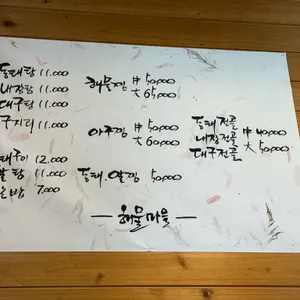 동태탕 11.000
내장탕 11.000
대구탕 11.000
구지리 11.000
태구이 12.000
알탕 11.000
밥 7.000
해물찜 中 50,000
大 65.000
아구찜 中 50,000
大 60.000
동태.알찜 50,000
동태전골
내장전골 中 40,000
대구전골 大 50,000
해물마을